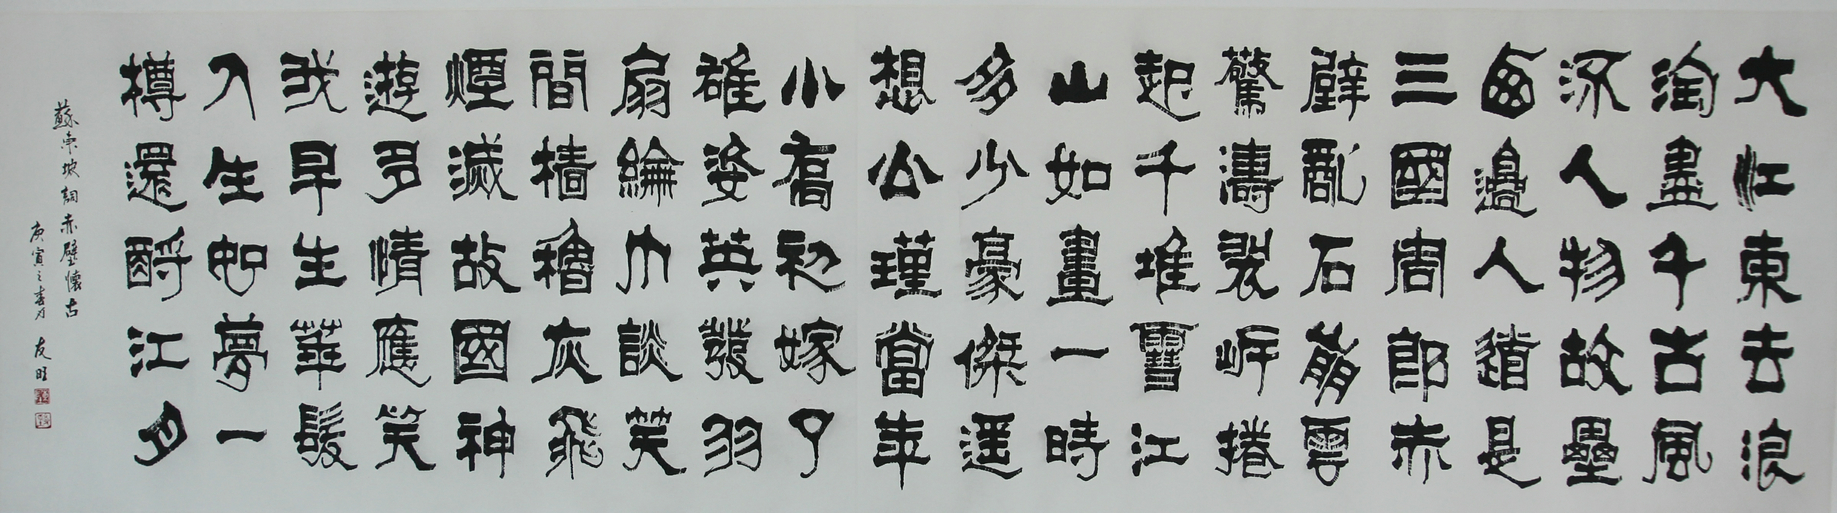 大江東去浪
淘盡千古風
流人物故壘
西邊人道是
三國周郎赤
壁亂石崩雲
驚濤裂岸捲
起千堆雪江
山如畫一時
多少豪傑遥
想公瑾當年
小喬初嫁了
雄姿英發羽
扇綸巾談笑
間檣櫓灰飛
煙滅故國神
遊多情應笑
我早生華髮
人生如夢一
樽還酹江月
蘇東坡詞赤壁懷古
庚寅之春月 友旺